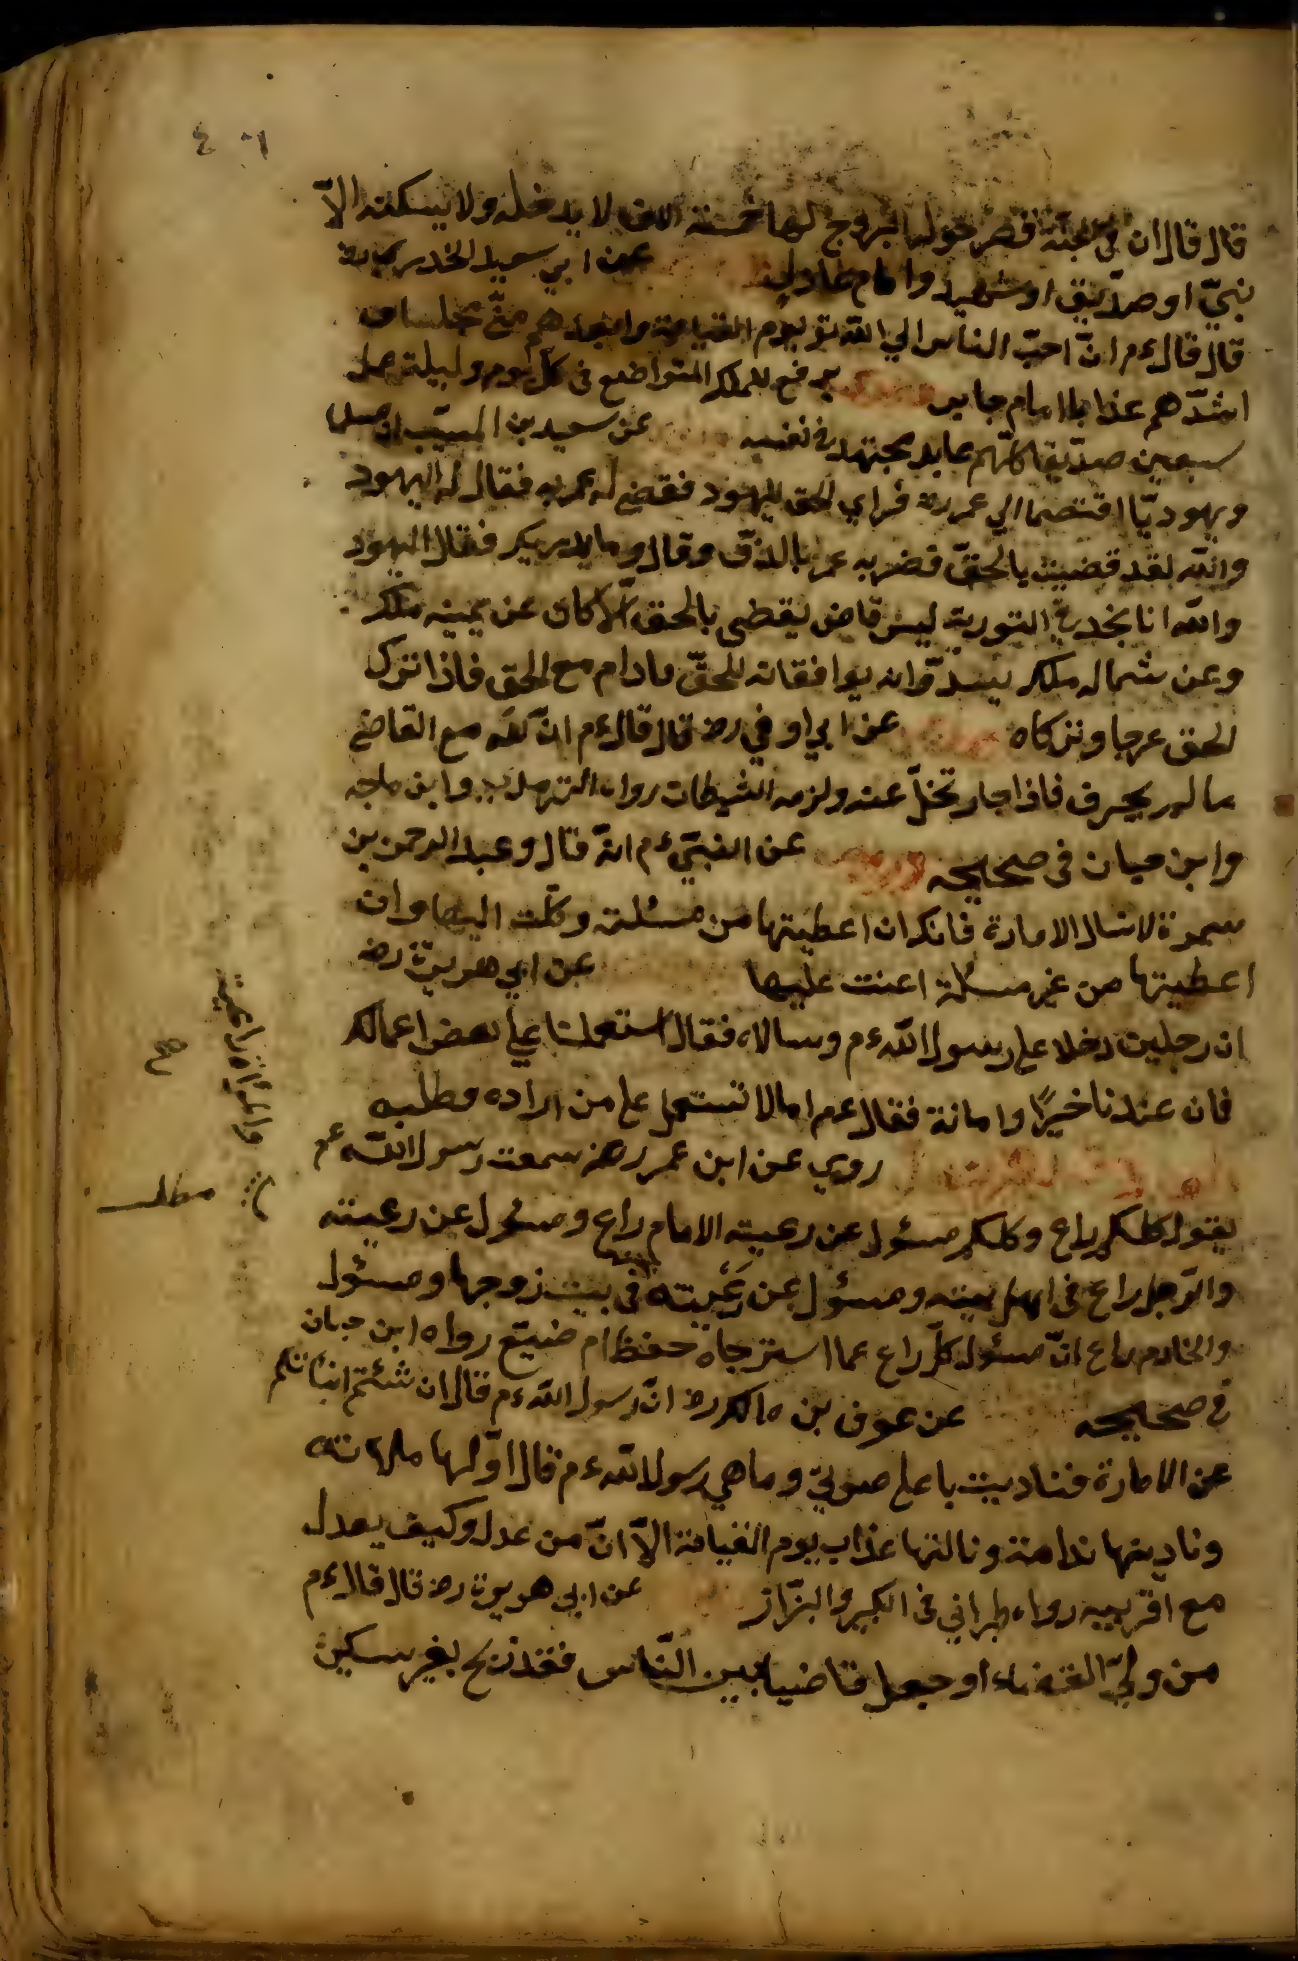 ٤٠٦
قال قال ان في الجنة قصر حوله البروج لها خمسة الاف لا يدخله ولا يسكنه الّا
نبيّ او صدّيق او شهيد وامام عادل عن ابي سعيد الخدري رضه
قال قال ءم انّ احبّ الناس الي اللّه تع يوم القيامة وابعدهم منّي مجلسا و
اشدّهم عذابا امام جابر يرفع للملك المتواضع في كل يوم وليلة عمل
سبعين صدّيقا كلّهم عابد مجتهد في نفسه عن سعيد بن المسيّب ان مسلما
ويهوديّا اختصما الي عمر رضه فراي الحق لليهود فقضي له عمر به فقال له اليهود
واللّه لقد قضيت بالحقّ فضربه عمر بالدرّة وقال وما يدريك فقال اليهود
واللّه انا نجد في التورية ليس قاض يقضي بالحق الّا كان عن يمينه ملك
وعن شماله ملك يسدّدانه يوافقانه للحقّ مادام مع الحق فاذا ترك
الحق عرجا وتركاه عن ابي اوفي رضه قال قال ءم انّ اللّه مع القاضي
ما لم يجرف فاذا جار تخلّ عنه ولزمه الشيطان رواه الترمذي وابن ماجه
وابن حبان في صحيحه عن النبيّ ءم انّه قال وعبد الرحمن بن
سمرة لا تسال الامارة فانك ان اعطيتها من مسئلة وكّلت اليها وان
اعطيتها من غير مسئلة اعنت عليها عن ابي هريرة رضه
ان رجلين دخلا علي رسول اللّه ءم وسالاه فقال استعملنا علي بعض اعمالك
فان عندنا خيرًا وامانة فقال عم اما لا نستعمل علي من اراده وطلبه
روي عن ابن عمر رضه سمعت رسول اللّه عم
يقول كلكم راع وكلكم مسئول عن رعيته الامام راع ومسئول عن رعيته
والرّجل راع في اهل بيته ومسئول عن رَعيته في بيت زوجها ومسئول
والمراة راعية
صح
مطلب
والخادم راع انّ مسئول كلّ راع عما استرجاه حفظ ام ضيّع رواه ابن حبان
في صحيحه عن عوف بن مالك رضه انّ رسول اللّه ءم قال ان شئتم انباتكم
عن الامارة فناديت باعلي صوتي وما هي رسول اللّه ءم قال اوّلها ملامته
وثاديتها ندامة وثالثها عذاب يوم القيامة الّا انّ من عدل وكيف يعدل
مع اقربيه رواه طبراني في الكبير والبزّاز عن ابي هريرة رضه قال قال ءم
من وليّ القضاء او جعل قاضيا بين النّاس فقد ذبح بغير سكين